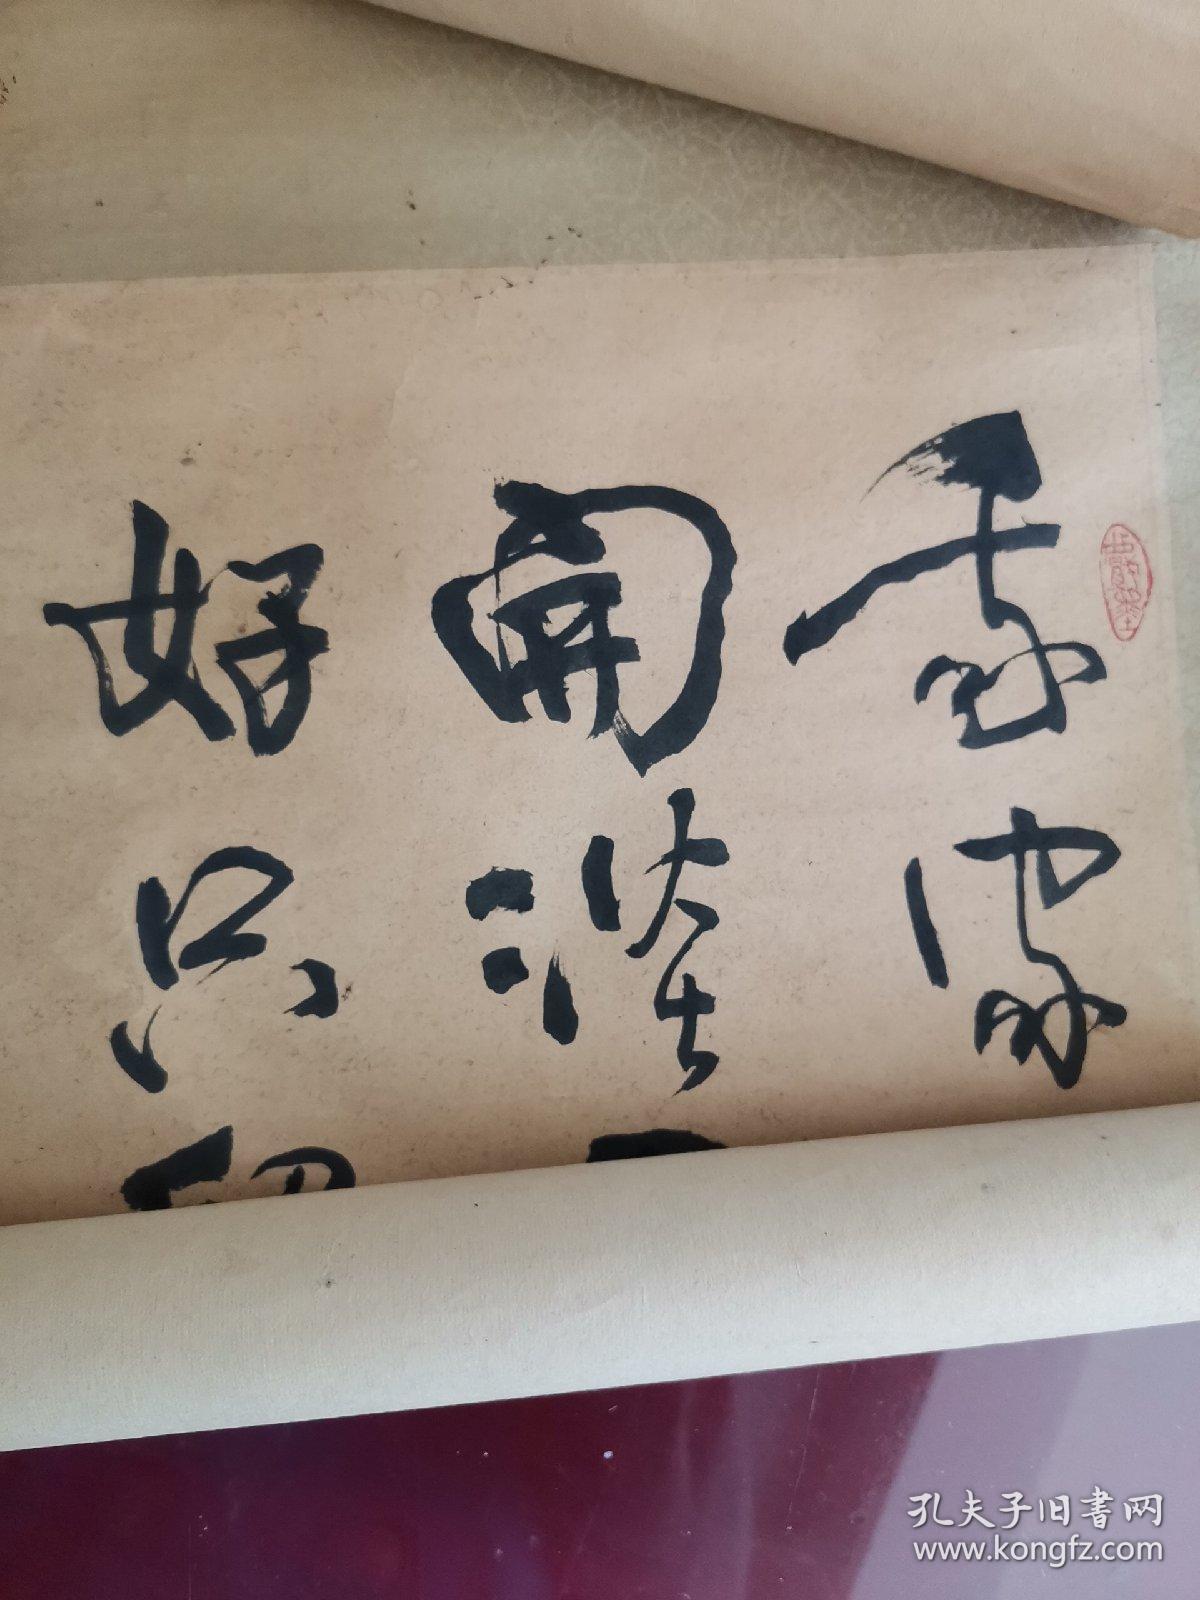 我家
開淡
好只
孔夫子旧书网
www.kongfz.com